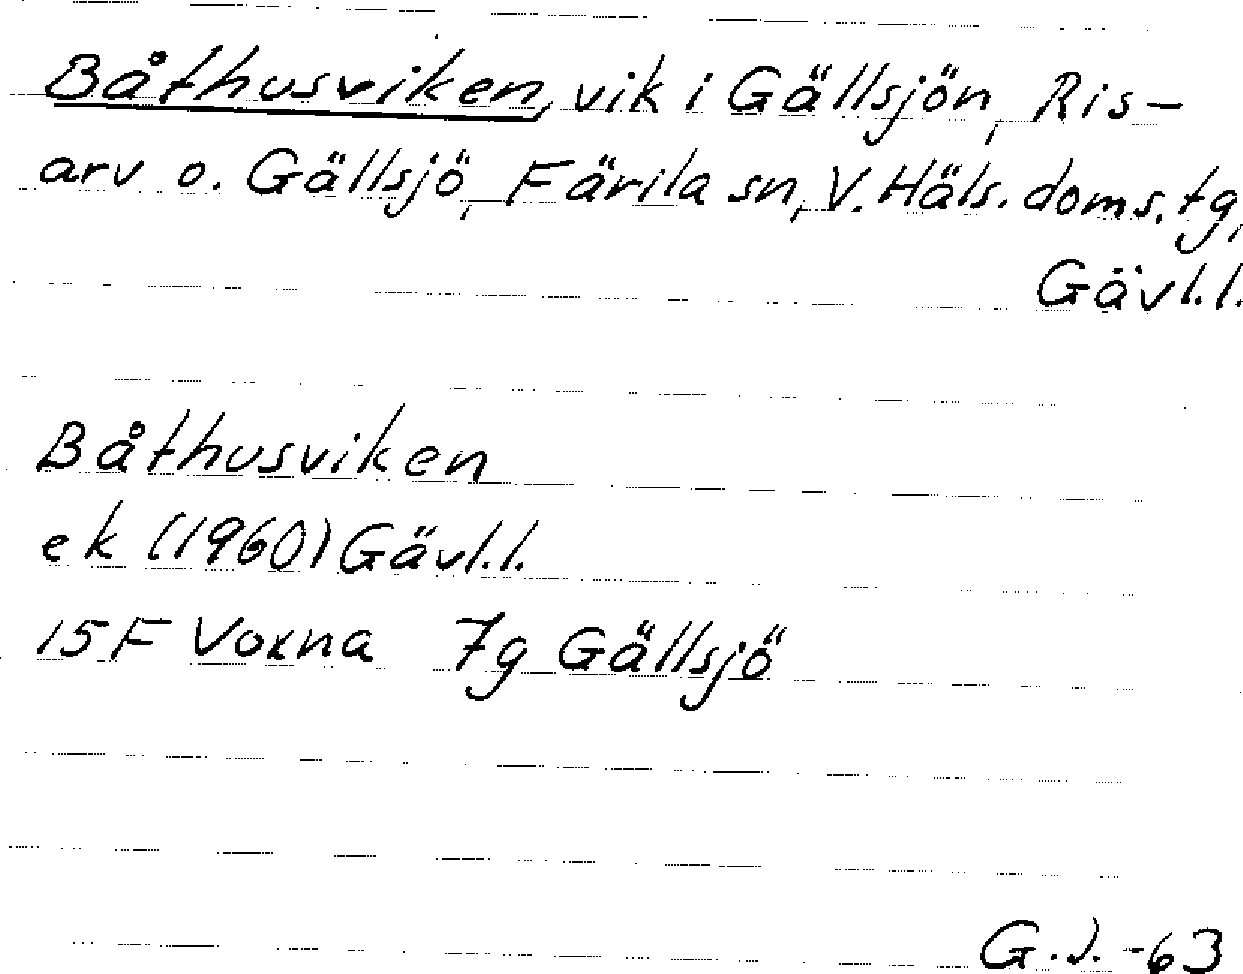 Båthusviken, vik i Gällsjön, Ris-
arv o. Gällsjö, Färila sn, V. Häls. doms. tg,
Gävl.l.
Båthusviken
ek (1960) Gävl.l.
15F Voxna 7g Gällsjö
G.J. -63